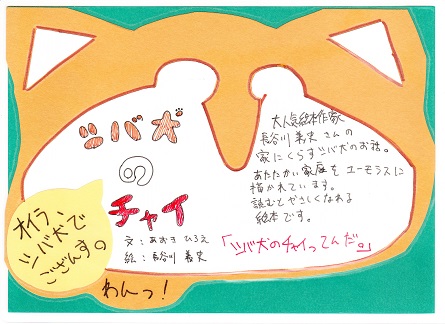 ツバ犬
の
チャイ
文：あおき ひろえ
絵：長谷川 義史
大人気絵本作家
長谷川 義史 さんの
家にくらすツバ犬のお話。
あたたかい家庭をユーモラスに
描かれています。
読むとやさしくなれる
絵本です。
「ツバ犬のチャイってんだ。」
オイラ、
ツバ犬で
ござんすの
わんっ！